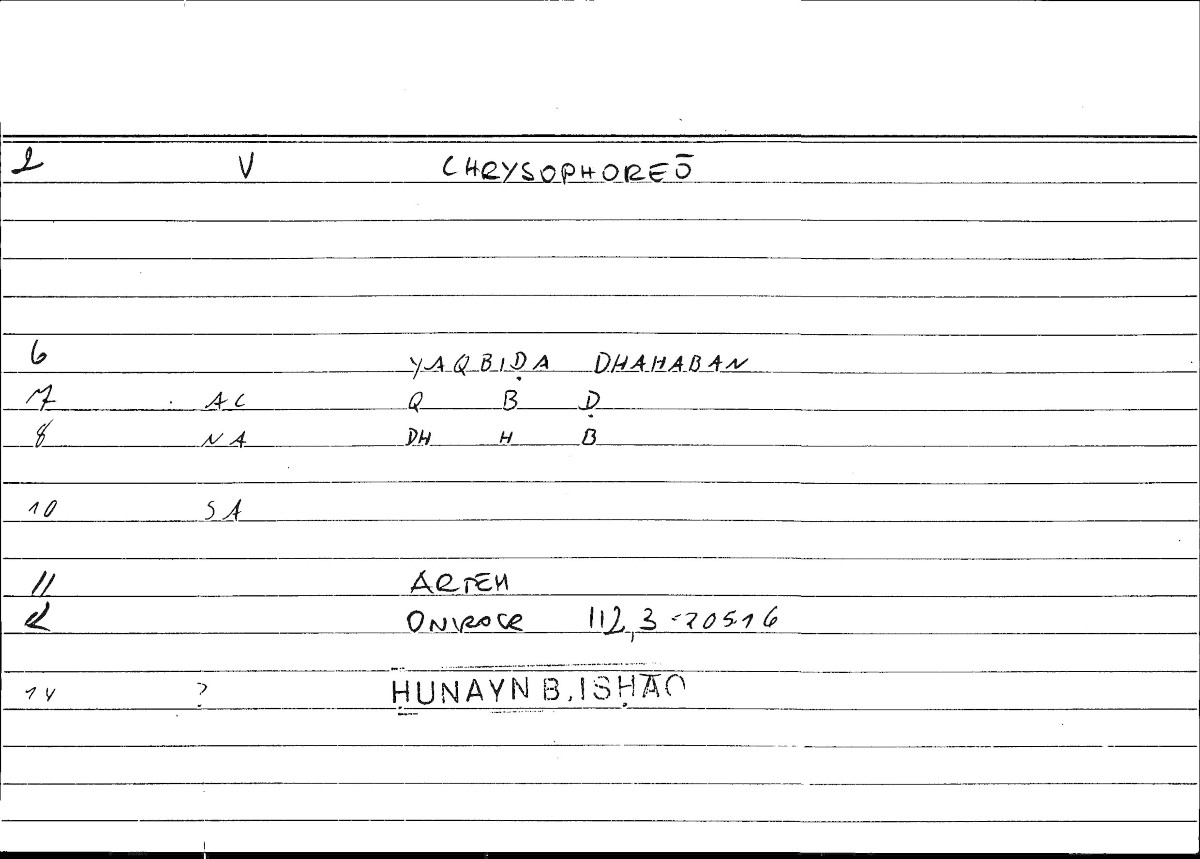 2 V CHRYSOPHOREŌ
6 YAQBIḌA DHAHABAN
7 AC Q B Ḍ
8 NA DH H B
10 SA
11 ARTEM
ONIROCR 112,3 - 205.16
14 ? ḤUNAYN B. ISḤĀQ